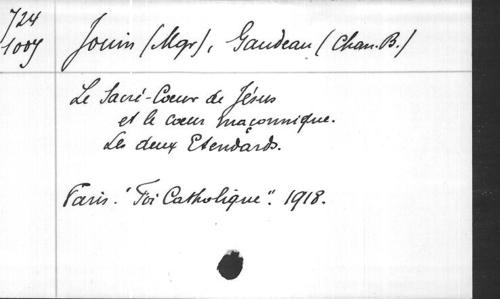 724
1009
Jouin (Mgr), Gaudeau (Chan. B.)
Le Sacré-Coeur de Jésus
et le coeur maçonnique.
Les deux Etendards.
Paris. "Foi Catholique". 1918.